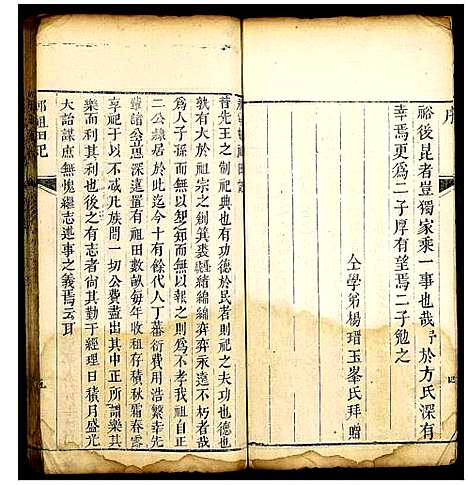 序
裕後昆者豈獨家乘一事也哉予於方氏深有
幸焉更爲二子厚有望焉二子勉之
仝學弟楊瑨玉峯氏拜贈
四
昔先王之制祀典也有功德於民者則祀之夫功也
孰有大於祖宗之創箕裘縋緒綿綿弈弈永遠不朽者哉
爲人子孫而無以知之知而無以報之則爲不孝我祖
二公隸居於此迄今十有餘代人丁蕃衍費用浩繁幸先
輩諸公謀深遠置有祖田數畝每年收租存積秋霜春露
享祀于以不减凡族間一切公費盡出其中正所謂樂其
樂而利其利也後之有志者尙其勤于經理日積月盛光
大詒謀庶無愧繼志述事之義焉云耳
祠租田記
五